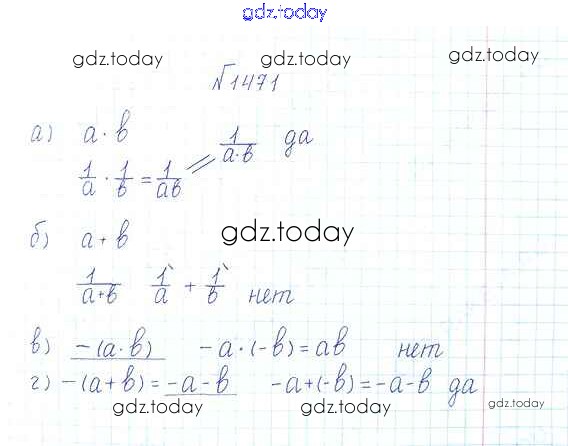 gdz.today
gdz.today gdz.today gdz.today
№1471
а) a · b 1/(a·b) да
1/a · 1/b = 1/ab
б) a + b gdz.today
1/(a+b) 1/a + 1/b нет
в) -(a · b) -a · (-b) = ab нет
г) -(a + b) = -a - b -a+(-b)=-a-b да
gdz.today gdz.today gdz.today